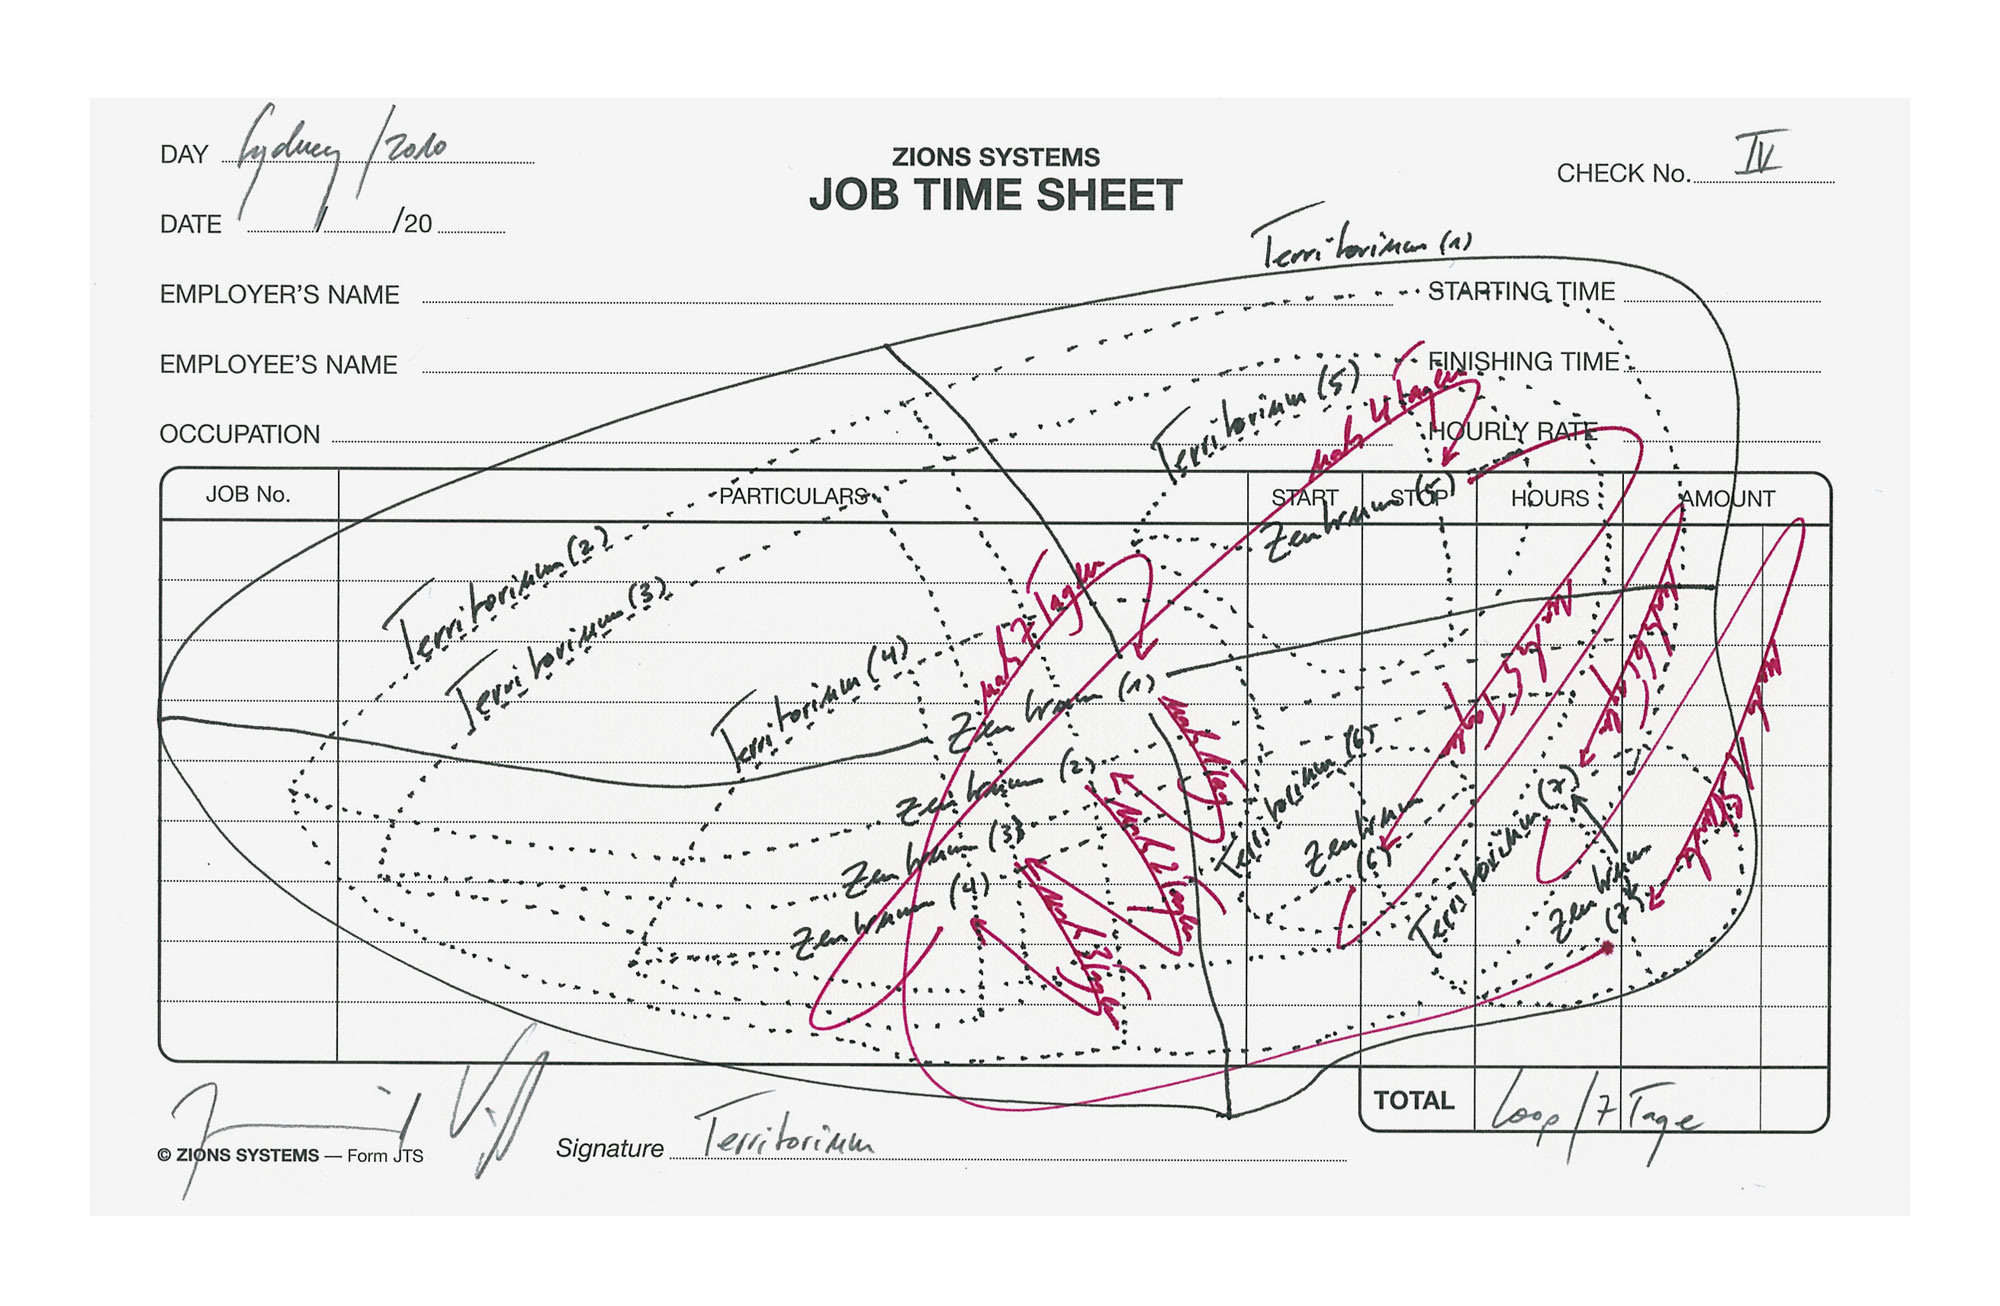 DAY Sydney / 2010
ZIONS SYSTEMS
JOB TIME SHEET
CHECK No. IV
DATE / /20
Territorium (1)
EMPLOYER'S NAME
STARTING TIME
EMPLOYEE'S NAME
FINISHING TIME
Territorium (5)
nach 4 Tagen
OCCUPATION
HOURLY RATE
JOB No. PARTICULARS START STOP HOURS AMOUNT
Zentraum (5)
Territorium (2)
Territorium (3)
nach 7 Tagen
nach 5 Tagen
nach 6 Tagen
Territorium (4)
Zentraum (1)
nach 1 Tag
Zentraum (2)
Territorium (6)
nach 2 Tagen
Zentraum (3)
Zentraum
(6)
Territorium (7)
Zentraum (4)
Zentraum
(7)
nach 3 Tagen
TOTAL Loop / 7 Tage
Signature Territorium
© ZIONS SYSTEMS — Form JTS